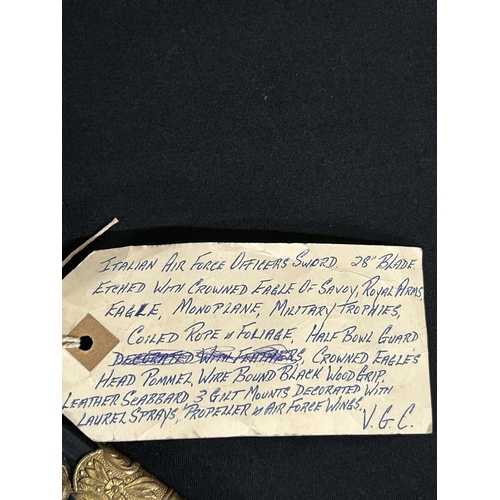 ITALIAN AIR FORCE OFFICERS SWORD 28" BLADE
ETCHED WITH CROWNED EAGLE OF SAVOY, ROYAL ARMS,
EAGLE, MONOPLANE, MILITARY TROPHIES,
COILED ROPE & FOLIAGE, HALF BOWL GUARD
DECORATED WITH FEATHERS, CROWNED EAGLES
HEAD POMMEL, WIRE BOUND BLACK WOOD GRIP.
LEATHER SCABBARD, 3 GILT MOUNTS DECORATED WITH
LAUREL SPRAYS, PROPELLER & AIR FORCE WINGS.
V.G.C.